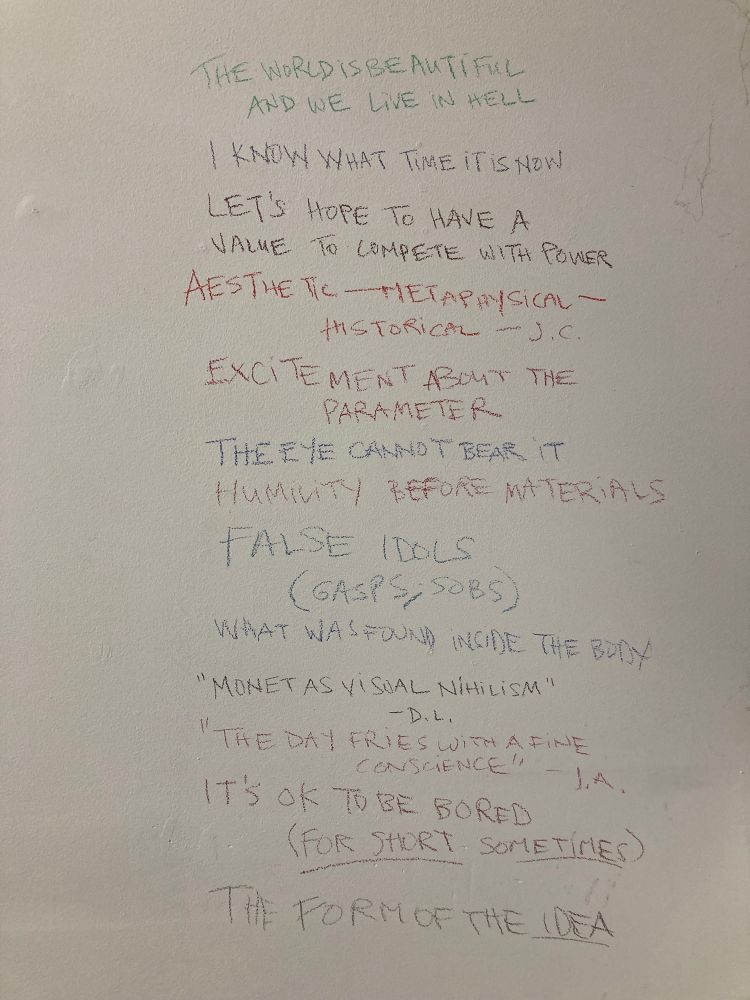 THE WORLD IS BEAUTIFUL
AND WE LIVE IN HELL
I KNOW WHAT TIME IT IS NOW
LET'S HOPE TO HAVE A
VALUE TO COMPETE WITH POWER
AESTHETIC — METAPHYSICAL —
HISTORICAL — J.C.
EXCITEMENT ABOUT THE
PARAMETER
THE EYE CANNOT BEAR IT
HUMILITY BEFORE MATERIALS
FALSE IDOLS
(GASPS, SOBS)
WHAT WAS FOUND INSIDE THE BODY
"MONET AS VISUAL NIHILISM"
— D.L.
"THE DAY FRIES WITH A FINE
CONSCIENCE" — J.A.
IT'S OK TO BE BORED
(FOR SHORT SOMETIMES)
THE FORM OF THE IDEA